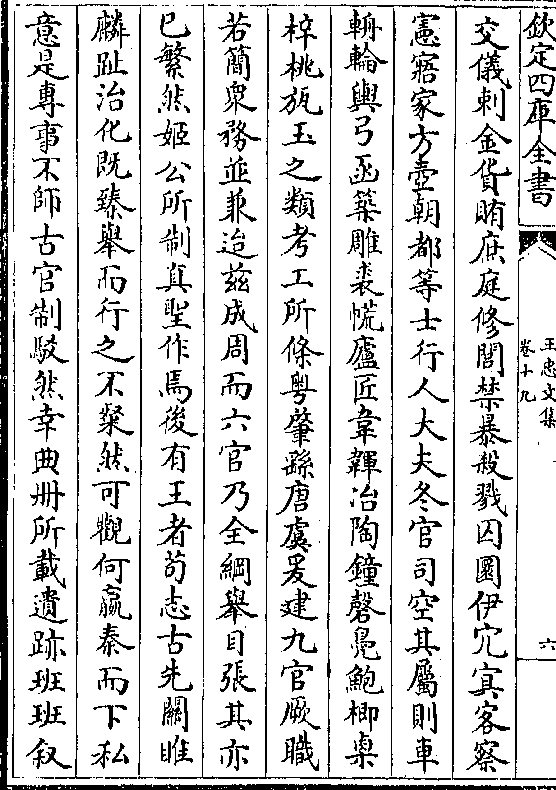 欽定四庫全書
王忠文集
卷十九
六
交儀刺金貨賄庶庭修閭禁暴殺戮囚圜伊穴寘客察
憲寤家方壺朝都等士行人大夫冬官司空其屬則車
輈輪輿弓函築雕裘㡆廬匠韋韗冶陶鐘磬鳧鮑楖㮚
梓桃瓬玉之類考工所條粤肇繇唐虞爰建九官厥職
若簡衆務並兼迨兹成周而六官乃全綱舉目張其亦
已繁然姬公所制真聖作焉後有王者茍志古先闗睢
麟趾治化既臻舉而行之不粲然可觀何嬴秦而下私
意是專事不師古官制駁然幸典册所載遺跡班班叙